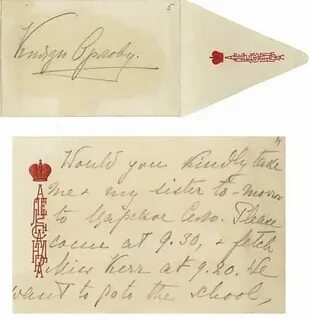 Князю Орлову.
5
Would you kindly take
me & my sister to-morrow
to Царское Село. Please
come at 9.30, & fetch
Miss Kerr at 9.20. We
want to go to the school,